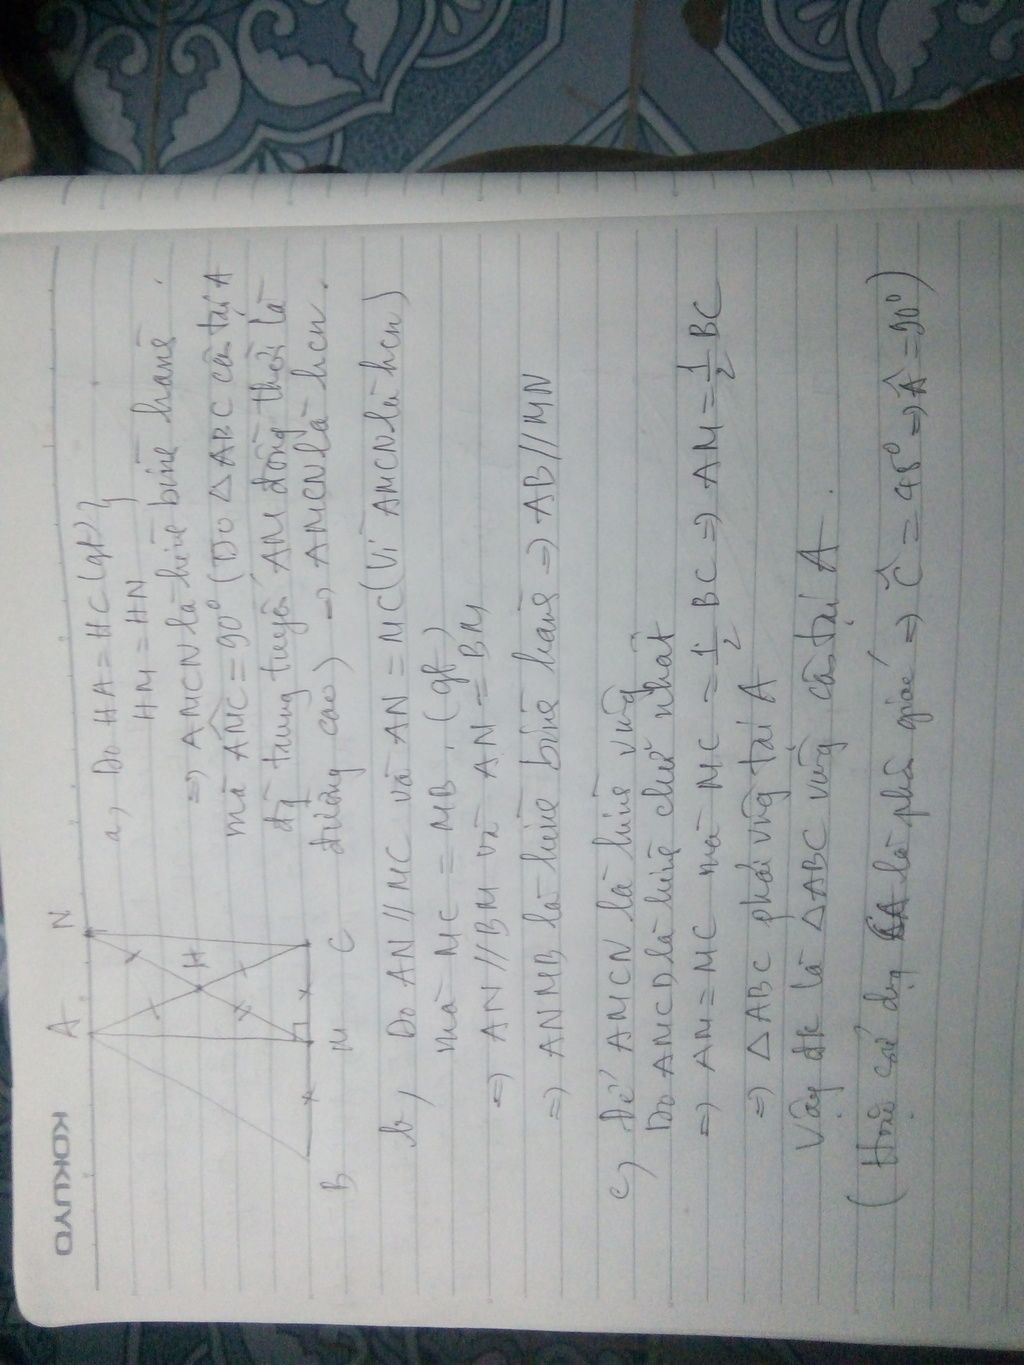 KOKUYO
A N
H
B M C
a, Do HA = HC (gt)}
HM = HN
=> AMCN là hình bình hành.
mà AMC = 90° (Do △ABC cân tại A
trung tuyến AM đồng thời là
đường cao) => AMCN là hcn.
b, Do AN // MC và AN = MC (Vì AMCN là hcn)
mà MC = MB. (gt)
=> AN // BM và AN = BM
=> ANMB là hình bình hành => AB // MN
c, Để AMCN là hình vuông
Do AMCN là hình chữ nhật
=> AM = MC mà MC = 1/2 BC => AM = 1/2 BC
=> △ABC phải vuông tại A
Vậy đk là △ABC vuông cân tại A.
(Hoặc có dùng CA là phân giác => Ĉ = 45° => Â = 90°)